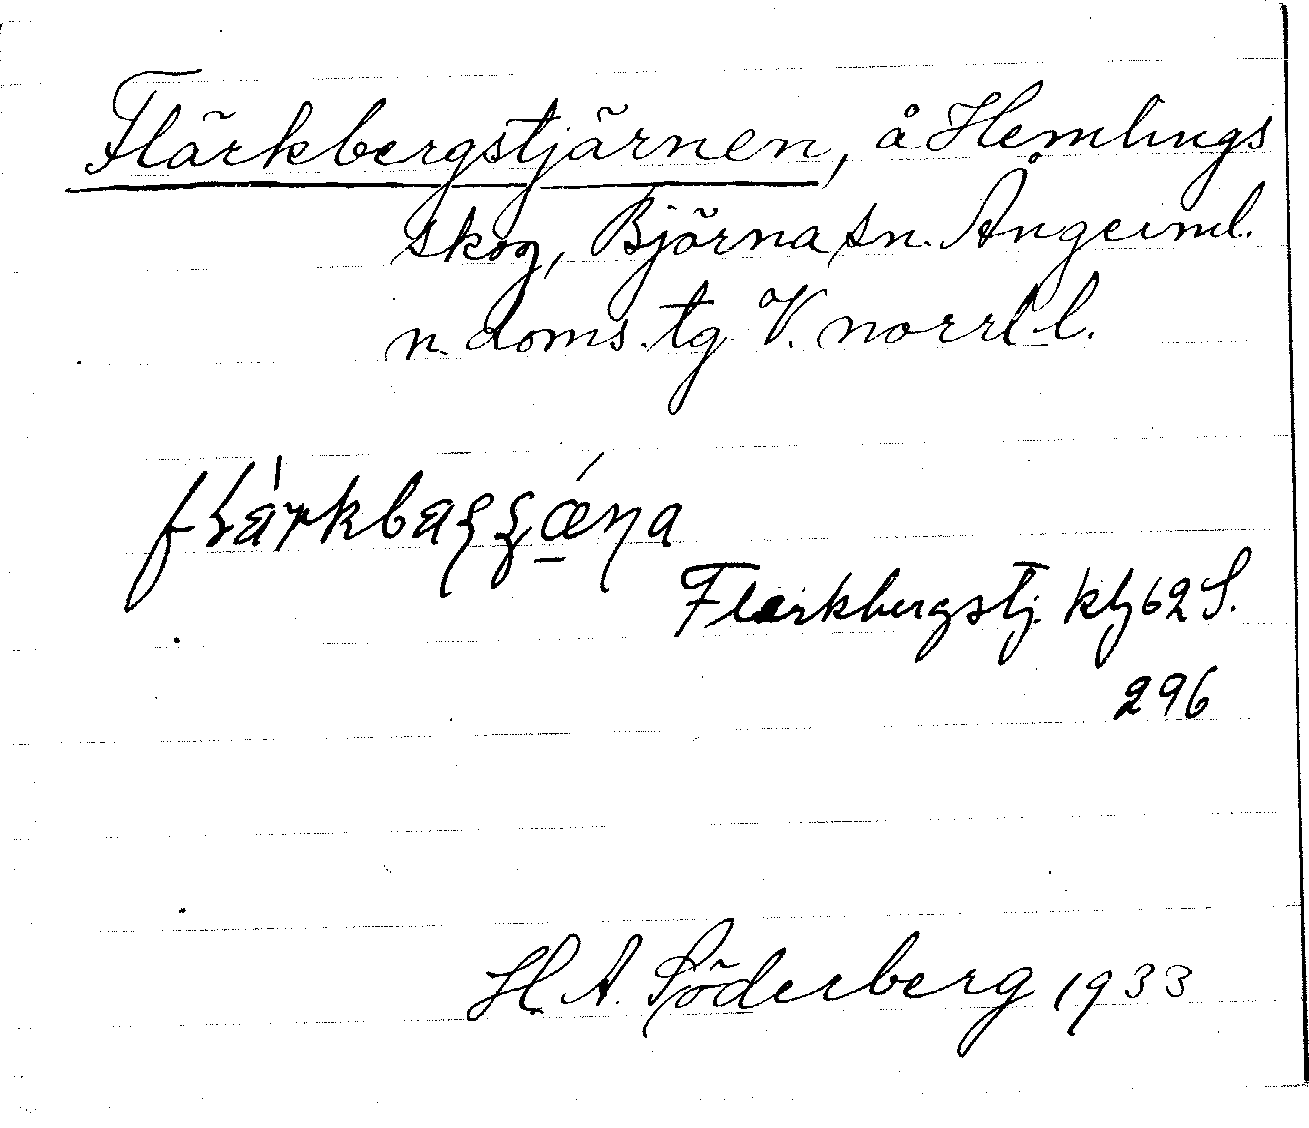 Flärkbergstjärnen, å Hemlings
skog, Björna sn. Ångerml.
n. doms. tg V. norrl l.
Flärkbergstj. kbl 62 S.
296
H. A. Söderberg 1933